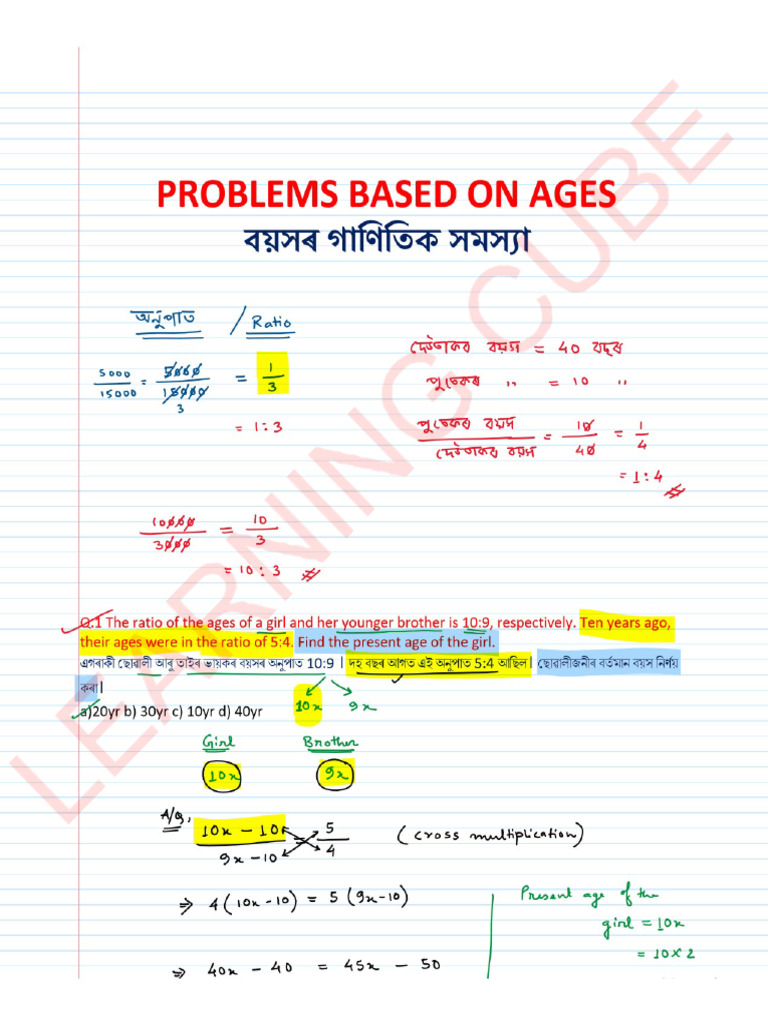 PROBLEMS BASED ON AGES
বয়সৰ গাণিতিক সমস্যা
অনুপাত / Ratio
5000/15000 = 5000/15000 3 = 1/3
= 1:3
দেউতাকৰ বয়স = 40 বছৰ
পুতেকৰ " = 10 "
পুতেকৰ বয়স/দেউতাকৰ বয়স = 10/40 = 1/4
= 1:4
10000/3000 = 10/3
= 10:3
Q.1 The ratio of the ages of a girl and her younger brother is 10:9, respectively. Ten years ago,
their ages were in the ratio of 5:4. Find the present age of the girl.
এগৰাকী ছোৱালী আৰু তাইৰ ভায়কৰ বয়সৰ অনুপাত 10:9 । দহ বছৰ আগত এই অনুপাত 5:4 আছিল। ছোৱালীজনীৰ বৰ্তমান বয়স নিৰ্ণয়
কৰা।
a)20yr b) 30yr c) 10yr d) 40yr
10x 9x
Girl Brother
10x 9x
A/Q,
10x - 10/9x - 10 = 5/4 (cross multiplication)
⇒ 4(10x-10) = 5(9x-10)
⇒ 40x - 40 = 45x - 50
Present age of the
girl = 10x
= 10×2
LEARNING CUBE